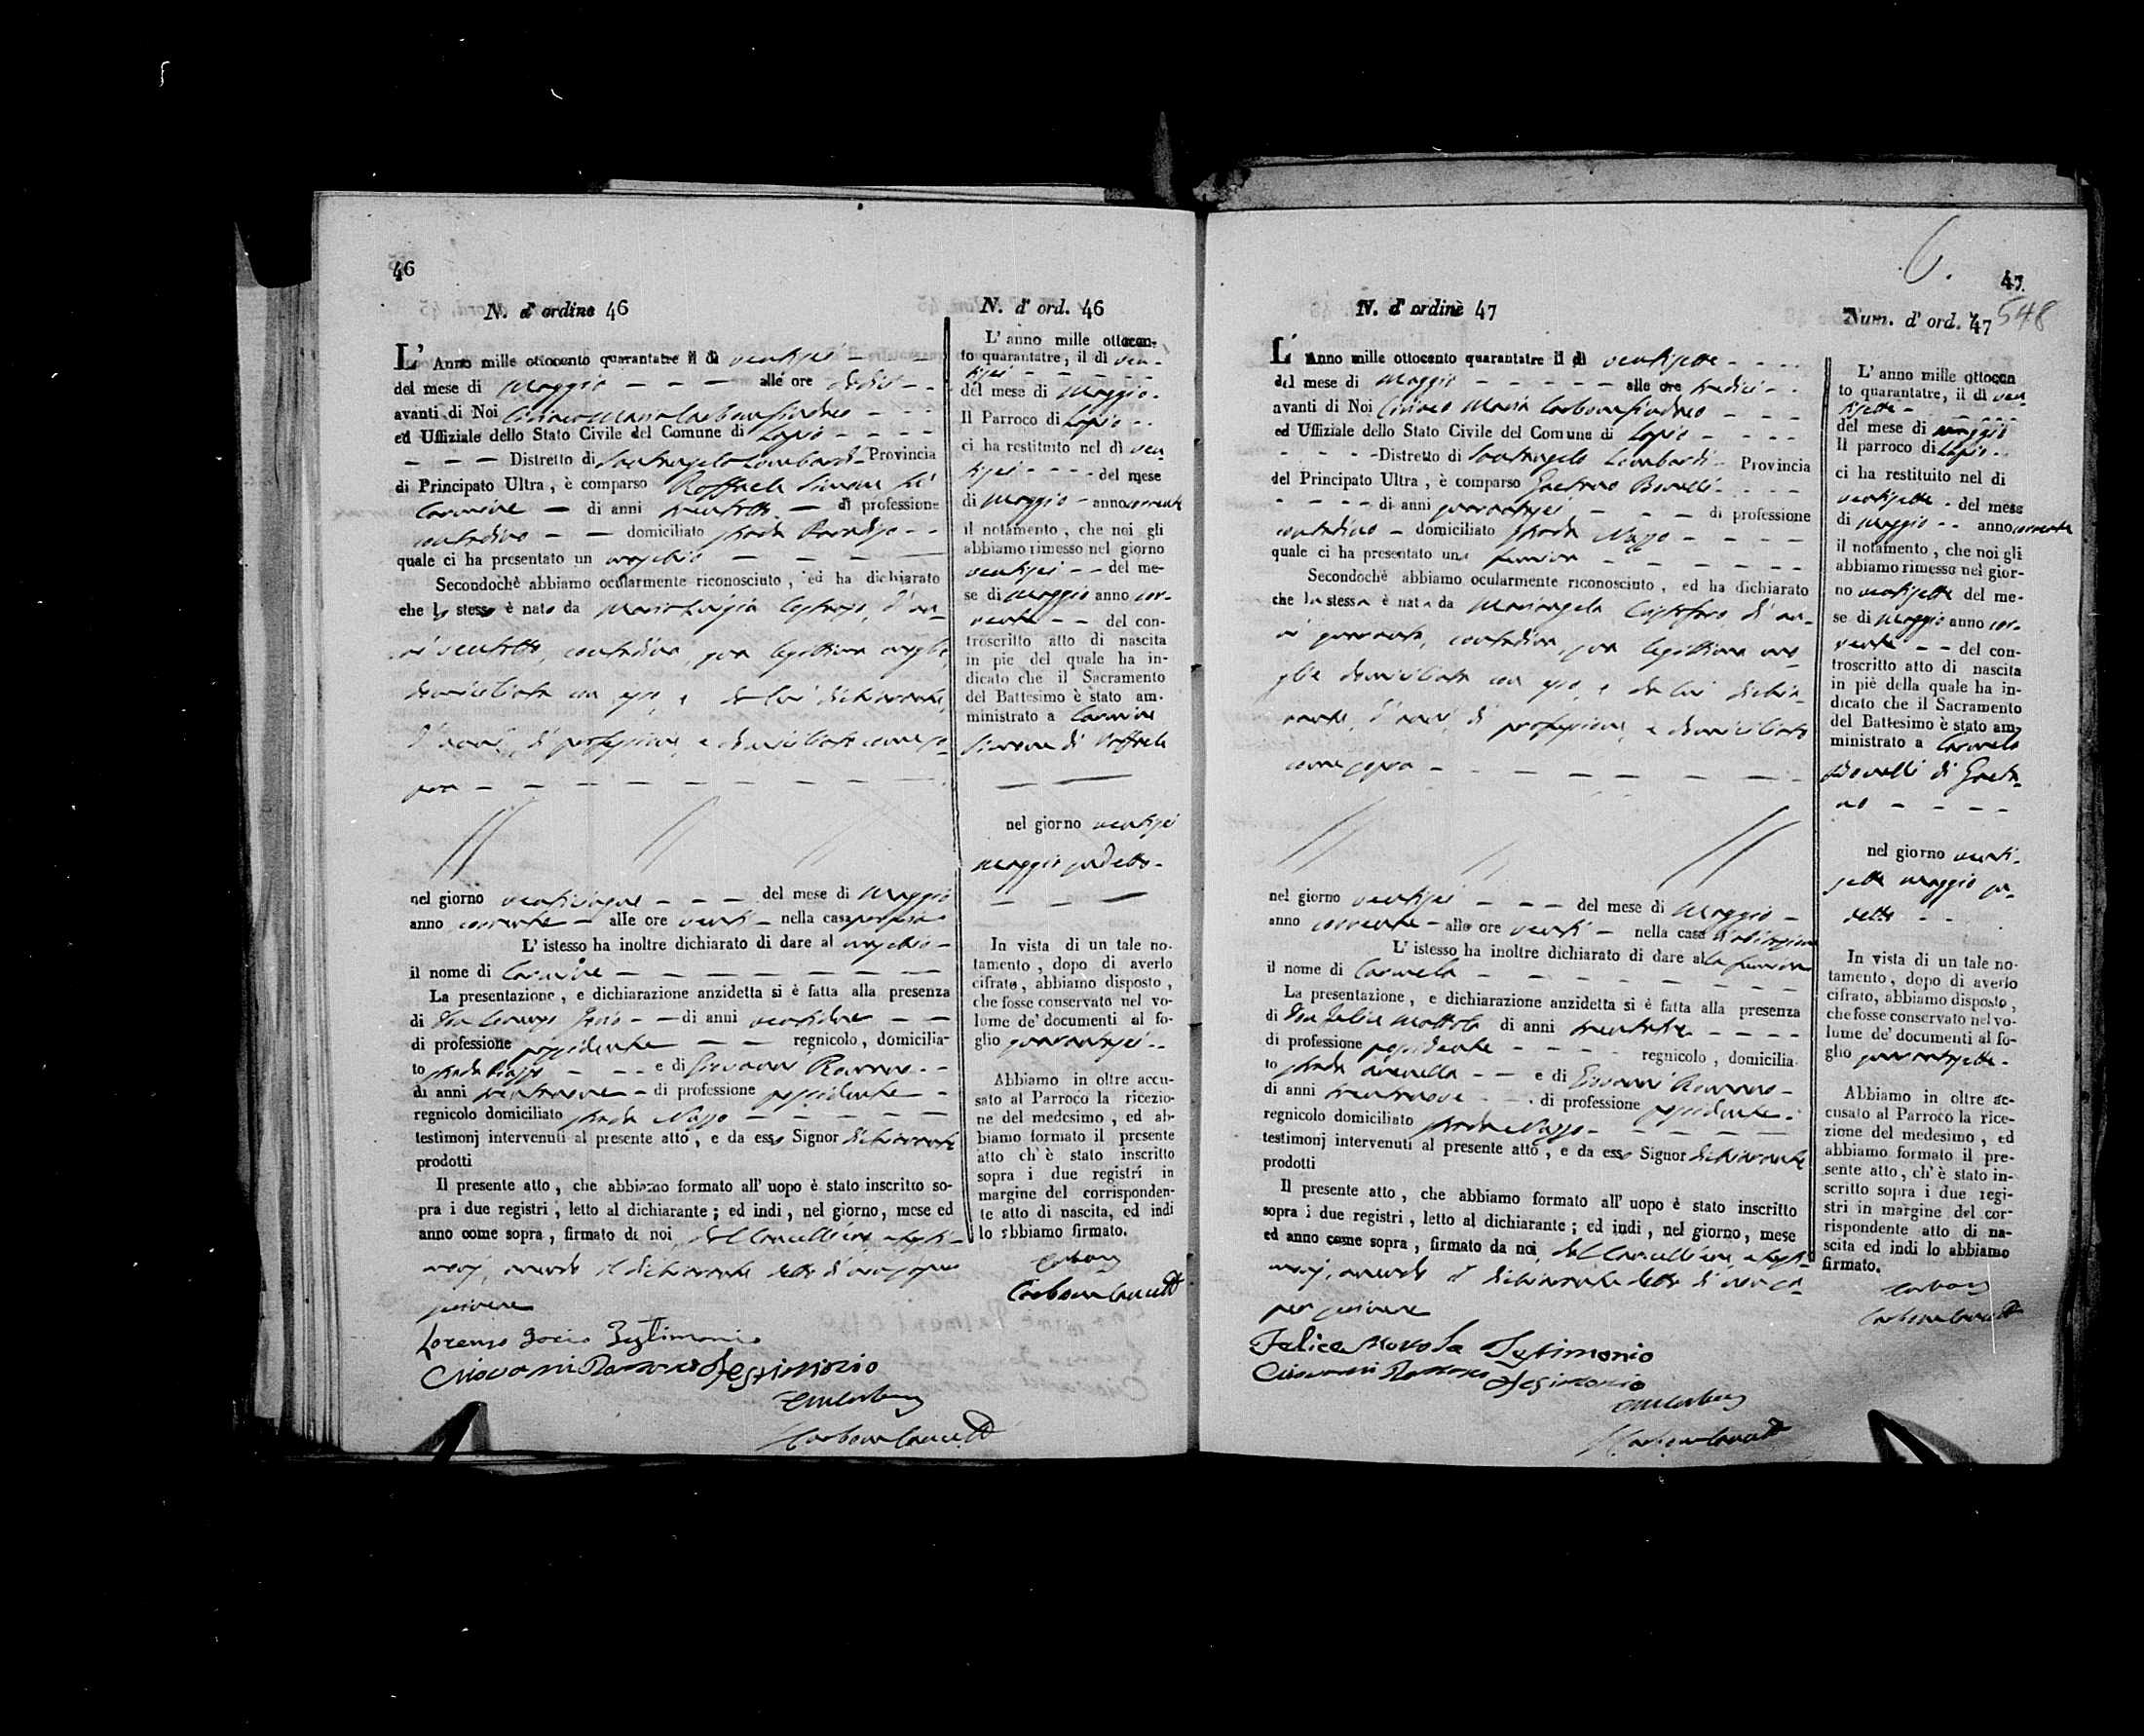 46
N. d' ordine 46
L' Anno mille ottocento quarantatre il dì ventisei
del mese di Maggio alle ore
avanti di Noi Ciriaco Maria Carbone Sindaco
ed Uffiziale dello Stato Civile del Comune di Lapio
Distretto di Santangelo Lombardi Provincia
di Principato Ultra, è comparso Raffaele Simone fu
Carmine di anni trentotto di professione
contadino domiciliato strada
quale ci ha presentato un maschio
Secondochè abbiamo ocularmente riconosciuto, ed ha dichiarato
che lo stesso è nato da Maria Luigia d' an-
ni ventotto, contadina, sua legittima moglie,
domiciliata con esso, e da lui dichiarante,
d' anni, di professione, e domiciliato come so-
pra
nel giorno venticinque del mese di Maggio
anno corrente alle ore venti nella casa propria
L' istesso ha inoltre dichiarato di dare al maschio
il nome di Carmine
La presentazione, e dichiarazione anzidetta si è fatta alla presenza
di Don Lorenzo di anni ventidue
di professione possidente regnicolo, domicilia-
to strada Piazza e di Giovanni Romano
di anni trentanove di professione possidente
regnicolo domiciliato strada Nazzo
testimonj intervenuti al presente atto, e da esso Signor dichiarante
prodotti
Il presente atto, che abbiamo formato all' uopo è stato inscritto so-
pra i due registri, letto al dichiarante; ed indi, nel giorno, mese ed
anno come sopra, firmato da noi, dal Cancelliere, e testi-
monj, avendo il dichiarante detto di non sapere
scrivere
Lorenzo Testimonio
Giovanni Romano Testimonio
Carbone Canc.
N. d' ord. 46
L' anno mille ottocen-
to quarantatre, il dì ven-
tisei
del mese di Maggio
Il Parroco di Lapio
ci ha restituito nel dì ven-
tisei del mese
di Maggio anno corrente
il notamento, che noi gli
abbiamo rimesso nel giorno
ventisei del me-
se di Maggio anno cor-
rente del con-
troscritto atto di nascita
in piè del quale ha in-
dicato che il Sacramento
del Battesimo è stato am-
ministrato a Carmine
Simone di Raffaele
nel giorno ventisei
Maggio sudetto
In vista di un tale no-
tamento, dopo di averlo
cifrato, abbiamo disposto,
che fosse conservato nel vo-
lume de' documenti al fo-
glio quarantasei
Abbiamo in oltre accu-
sato al Parroco la ricezio-
ne del medesimo, ed ab-
biamo formato il presente
atto ch' è stato inscritto
sopra i due registri in
margine del corrisponden-
te atto di nascita, ed indi
lo abbiamo firmato.
Carbone
Carbone Canc.
6.
47
548
N. d' ordine 47
L' Anno mille ottocento quarantatre il dì ventisette
del mese di Maggio alle ore tredici
avanti di Noi Ciriaco Maria Carbone Sindaco
ed Uffiziale dello Stato Civile del Comune di Lapio
Distretto di Santangelo Lombardi Provincia
del Principato Ultra, è comparso Gaetano
di anni quarantasei di professione
contadino domiciliato strada Nazzo
quale ci ha presentato una femina
Secondochè abbiamo ocularmente riconosciuto, ed ha dichiarato
che la stessa è nata da Mariangela d' an-
ni quaranta, contadina, sua legittima mo-
glie domiciliata con esso, e da lui dichia-
rante, d' anni, di professione, e domiciliato
come sopra
nel giorno ventisei del mese di Maggio
anno corrente alle ore venti nella casa d'abitazione
L' istesso ha inoltre dichiarato di dare alla femina
il nome di Carmela
La presentazione, e dichiarazione anzidetta si è fatta alla presenza
di Don Felice Mottola di anni trentatre
di professione possidente regnicolo, domicilia-
to strada e di Giovanni Romano
di anni trentanove di professione possidente
regnicolo domiciliato strada Nazzo
testimonj intervenuti al presente atto, e da esso Signor dichiarante
prodotti
Il presente atto, che abbiamo formato all' uopo è stato inscritto
sopra i due registri, letto al dichiarante; ed indi, nel giorno, mese
ed anno come sopra, firmato da noi, dal Cancelliere, e testi-
monj, avendo il dichiarante detto di non sa-
per scrivere
Felice Testimonio
Giovanni Romano Testimonio
Carbone Canc.
Num. d' ord. 47
L' anno mille ottocen
to quarantatre, il dì ven-
tisette
del mese di Maggio
Il parroco di Lapio
ci ha restituito nel di
ventisette del mese
di Maggio anno corrente
il notamento, che noi gli
abbiamo rimesso nel gior-
no ventisette del me-
se di Maggio anno cor-
rente del con-
troscritto atto di nascita
in piè della quale ha in-
dicato che il Sacramento
del Battesimo è stato am-
ministrato a Carmela
di Gaeta-
no
nel giorno venti-
sette Maggio su-
detto
In vista di un tale no-
tamento, dopo di averlo
cifrato, abbiamo disposto,
che fosse conservato nel vo-
lume de' documenti al fo-
glio quarantasette
Abbiamo in oltre ac-
cusato al Parroco la rice-
zione del medesimo, ed
abbiamo formato il pre-
sente atto, ch' è stato in-
scritto sopra i due regi-
stri in margine del cor-
rispondente atto di na-
scita ed indi lo abbiamo
firmato.
Carbone
Carbone Canc.